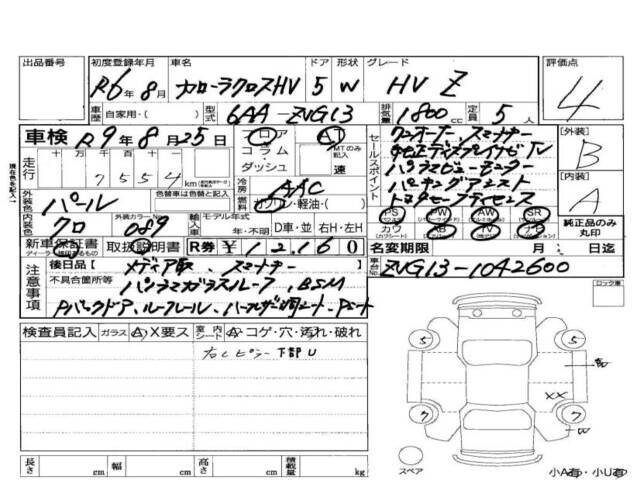 出品番号 初度登録年月 車名 ドア 形状 グレード 評価点
R6年 8月 カローラクロスHV 5 W HV Z 4
車歴 自家用・( ) 型式 6AA-ZVG13 排気量 1800cc 定員 5人
車検 R9年 8月 25日 フロア AT セールスポイント ワンオーナー、スマートキー [外装]
走行 十万 万 千 百 十 コラム・ MTのみ記入 純正ディスプレイナビTV B
7 5 5 4 km ダッシュ 速 パノラマビューモニター
外装色 パール 色替車は色替と記入 冷房 AAC パーキングアシスト [内装]
燃料 ガソリン・軽油・( ) トヨタセーフティセンス A
内装色 クロ 外装カラーNo. 089 輸入車 モデル年式 年・不明 D車・並 右H・左H PS PW AW SR
カワ AB TV ナビ 純正品のみ丸印
新車保証書 取扱説明書 R券 ¥12160 名変期限 月 日迄
注意事項 後日品( ) メディア取、スマートキー 車台No. ZVG13-1042600
不具合箇所等 パノラマガラスルーフ、BSM ロック車
Pバックドア、ルーフレール、
検査員記入 ガラス A X要ス 室内 シート A・コゲ・穴・汚れ・破れ
下部U
5 5
XX
7 7
長さ cm 幅 cm 高さ cm 積載量 kg スペア 小A有・小U有
現在色を記入